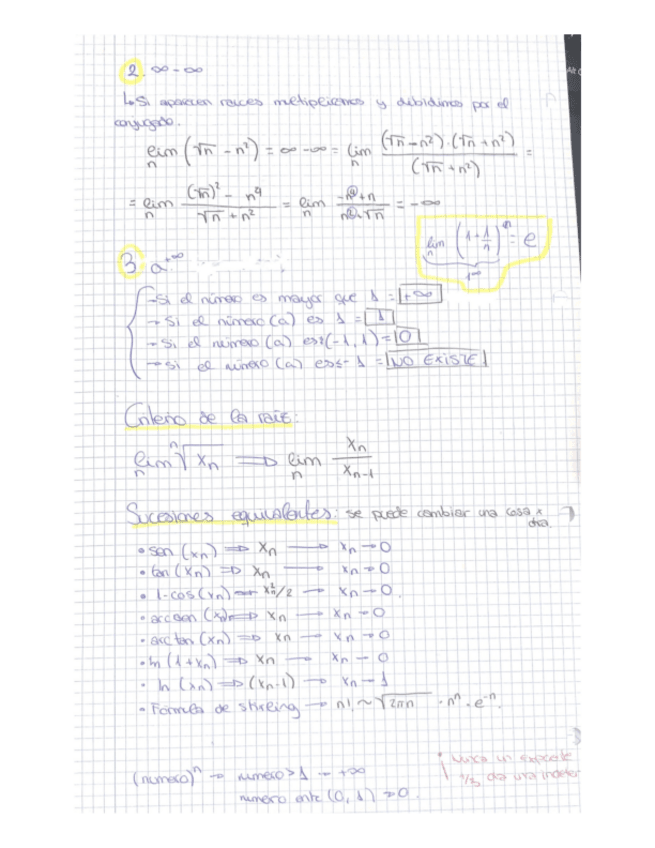 2. ∞-∞
↳ Si aparecen raices multiplicamos y dibidimos por el
conjugado.
lim n (√n - n²) = ∞-∞ = lim n (√n - n²)·(√n + n²) / (√n + n²) =
= lim n (√n)² - n⁴ / √n + n² = lim n -n④+n / n②+√n = -∞
lim n (1+1/n)ⁿ = e
1^∞
3. a^+∞
→ Si el número es mayor que 1 = +∞
→ Si el número (a) es 1 = 1
→ Si el número (a) es:(-1,1) = 0
→ Si el número (a) es ≤-1 = NO EXISTE
Criterio de la raiz:
lim n ⁿ√Xn ⇒ lim n Xn / Xn-1
Sucesiones equivalentes: se puede cambiar una cosa x
otra.
• sen (xn) ⇒ xn → xn → 0
• tan (xn) ⇒ xn → xn → 0
• 1-cos (xn) → xn²/2 → xn → 0.
• arcsen (xn) ⇒ xn → xn → 0
• arctan (xn) ⇒ xn → xn → 0
• ln (1+xn) ⇒ xn → xn → 0
• ln (xn) ⇒ (xn-1) → xn → 1
• Fórmula de stirling → n! ~ √2πn · nⁿ · e⁻ⁿ.
(numero)ⁿ → numero > 1 → +∞
numero entre (0, 1) → 0.
¡ Nunca un
1/3 da una